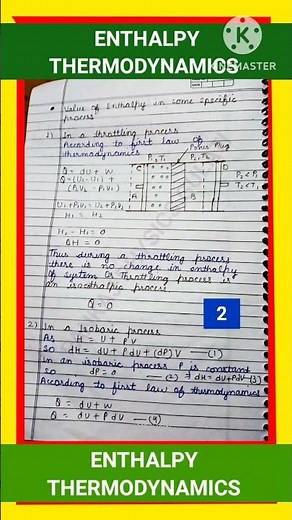 ENTHALPY
THERMODYNAMICS
KINEMASTER
• Value of Enthalpy in some specific
process
1) In a throttling process
According to first law of
thermodynamics
Porous Plug
P1, T1
P2, T2
Q = dU + W
Q = (U2 - U1) +
(P2V2 - P1V1)
C
D
A
B
P2 < P1
T2 < T1
U1 + P1V1 = U2 + P2V2
H1 = H2
H2 - H1 = 0
dH = 0
Thus during a throttling process
there is no change in enthalpy
of system or Throttling process is
an isoenthalpic process
Q = 0
2
2) In a isobaric process
As H = U + PV
So dH = dU + PdU + (dP)V — (1)
In an isobaric process P is constant
So dP = 0 — (2) dH = dU + PdV (3)
According to first law of thermodynamics
Q = dU + W
Q = dU + PdU — (4)
ENTHALPY
THERMODYNAMICS